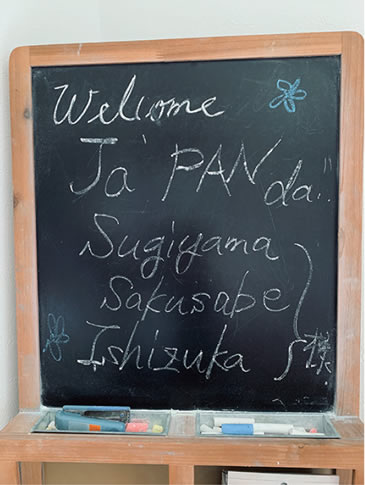 Welcome
Ja'PANda!!
Sugiyama
Sakusabe
Ishizuka 様